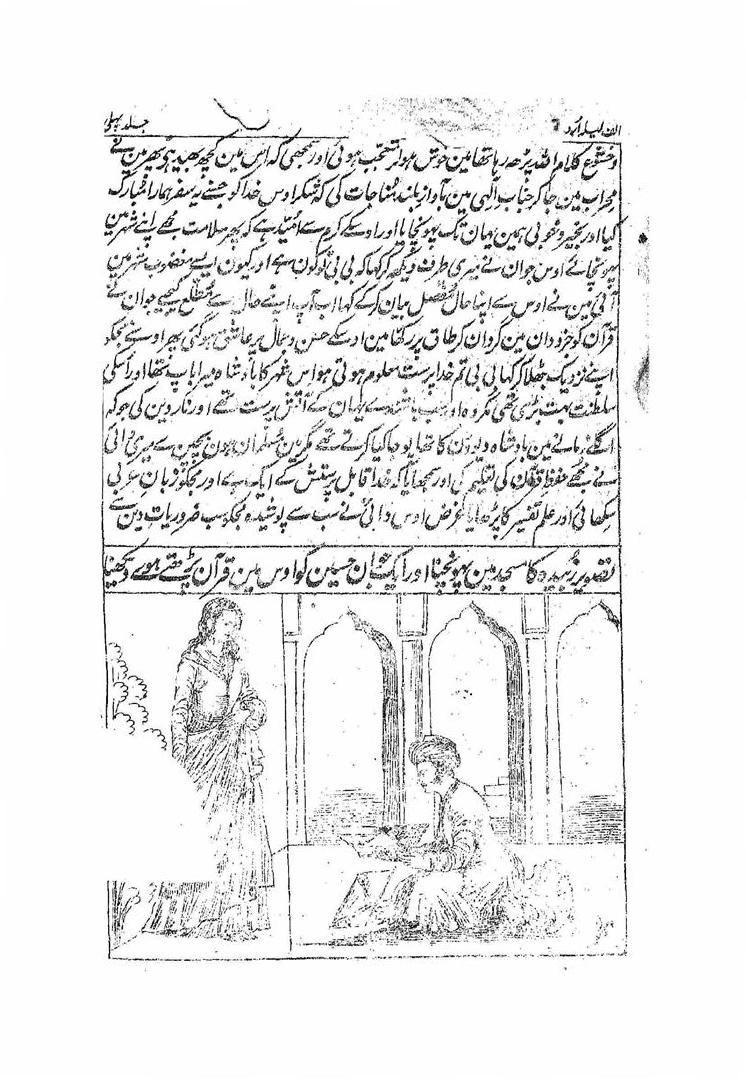 الف لیلہ اردو
جلد پہلی
و خشوع کلام اللہ پڑھ رہا تھا مین خوش ہو کر متعجب ہوئی اور سمجھی کہ اس مین کچھ بھید ہی پھر مین نے
محراب مین جا کر جناب الٰہی مین بآواز بلند مناجات کی کہ شکر اوس خدا کو جسنے یہ سفر ہمارا مبارک
کیا اور بخیر و خوبی ہمین یہان تک پہونچایا اور اوسکے کرم سے امید ہے کہ پھر سلامت مجھے اپنے شہر مین
پہونچائے اوس جوان نے میری طرف دیکھ کر کہا کہ بی بی تو کون ہے اور کیون ایسے مغضوب شہر مین
آئی مین نے اوس سے اپنا حال مفصل بیان کر کے کہا اب آپ اپنے حال سے مطلع کیجیے جوان نے
قرآن کو جزودان مین گردان کر طاق پر رکھا مین اوسکے حسن و جمال پر عاشق ہو گئی پھر اوسنے مجکو
اپنے نزدیک بٹھلا کر کہا بی بی تم خدا پرست معلوم ہوتی ہو اس شہر کا بادشاہ میرا باپ تھا اور اسکی
سلطنت بہت بڑی تھی مگر وہ اور سب باشندے یہان کے آتش پرست تھے اور نار دین کی جو کہ
اگلے زمانے مین بادشاہ دیوون کا تھا پوجا کیا کرتے تھے مگر مین مسلمان ہون بچپن سے میری دائی
نے مجھے حفظ قرآن کی تعلیم کی اور سمجھایا کہ خدا قابل پرستش کے ایک ہے اور مجکو زبان عربی
سکھائی اور علم تفسیر کا پڑھایا غرض اوس دائی نے سب سے پوشیدہ مجکو سب ضروریات دین سے
تصویر زبیدہ کا مسجد مین پہونچنا اور ایک جوان حسین کو اوس مین قرآن پڑھتے ہوے دیکھنا